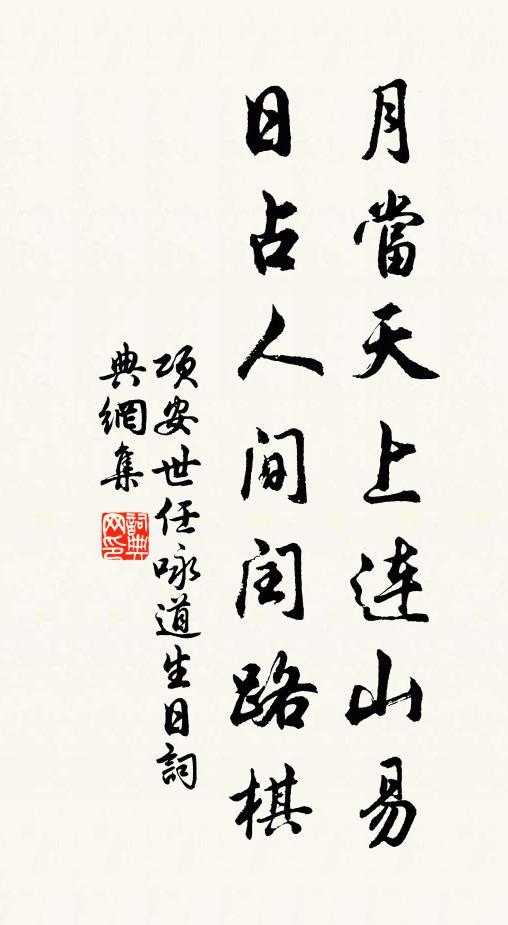 月當天上連山易
日占人間闰路棋
項安世任咏道生日詞
典網集
詞典网印